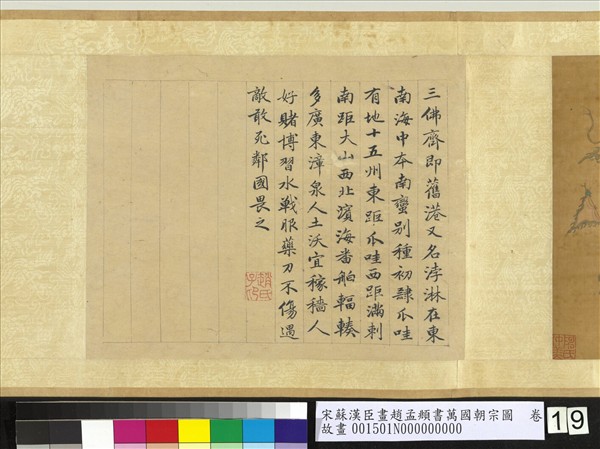 三佛齊即舊港又名浡淋在東
南海中本南蠻别種初隸爪哇
有地十五州東距爪哇西距滿剌
南距大山西北濱海番舶輻輳
多廣東漳泉人土沃宜稼穡人
好賭博習水戦服藥刀不傷遇
敵敢死鄰國畏之
趙氏子昂
宋蘇漢臣畫趙孟頫書萬國朝宗圖 卷
故畫 001501N000000000
19